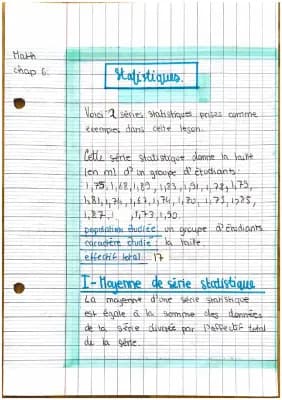 Math
chap 6:
Statistiques.
Voici 2 séries statistiques prises comme
exemples dans cette leçon.
Cette série statistique donne la taille
(en m) d'un groupe d'étudiants.
1,75, 1,68, 1,89, 1,83, 1,91, 1,78, 1,79,
1,81, 1,74, 1,67, 1,74, 1,80, 1,75, 1,85,
1,87, 1,73, 1,90.
population étudiée: un groupe d'étudiants
caractère étudié: la taille
effectif total: 17
I-Moyenne de série statistique
La moyenne d'une série statistique
est égale à la somme des données
de la série divisée par l'effectif total
de la série.